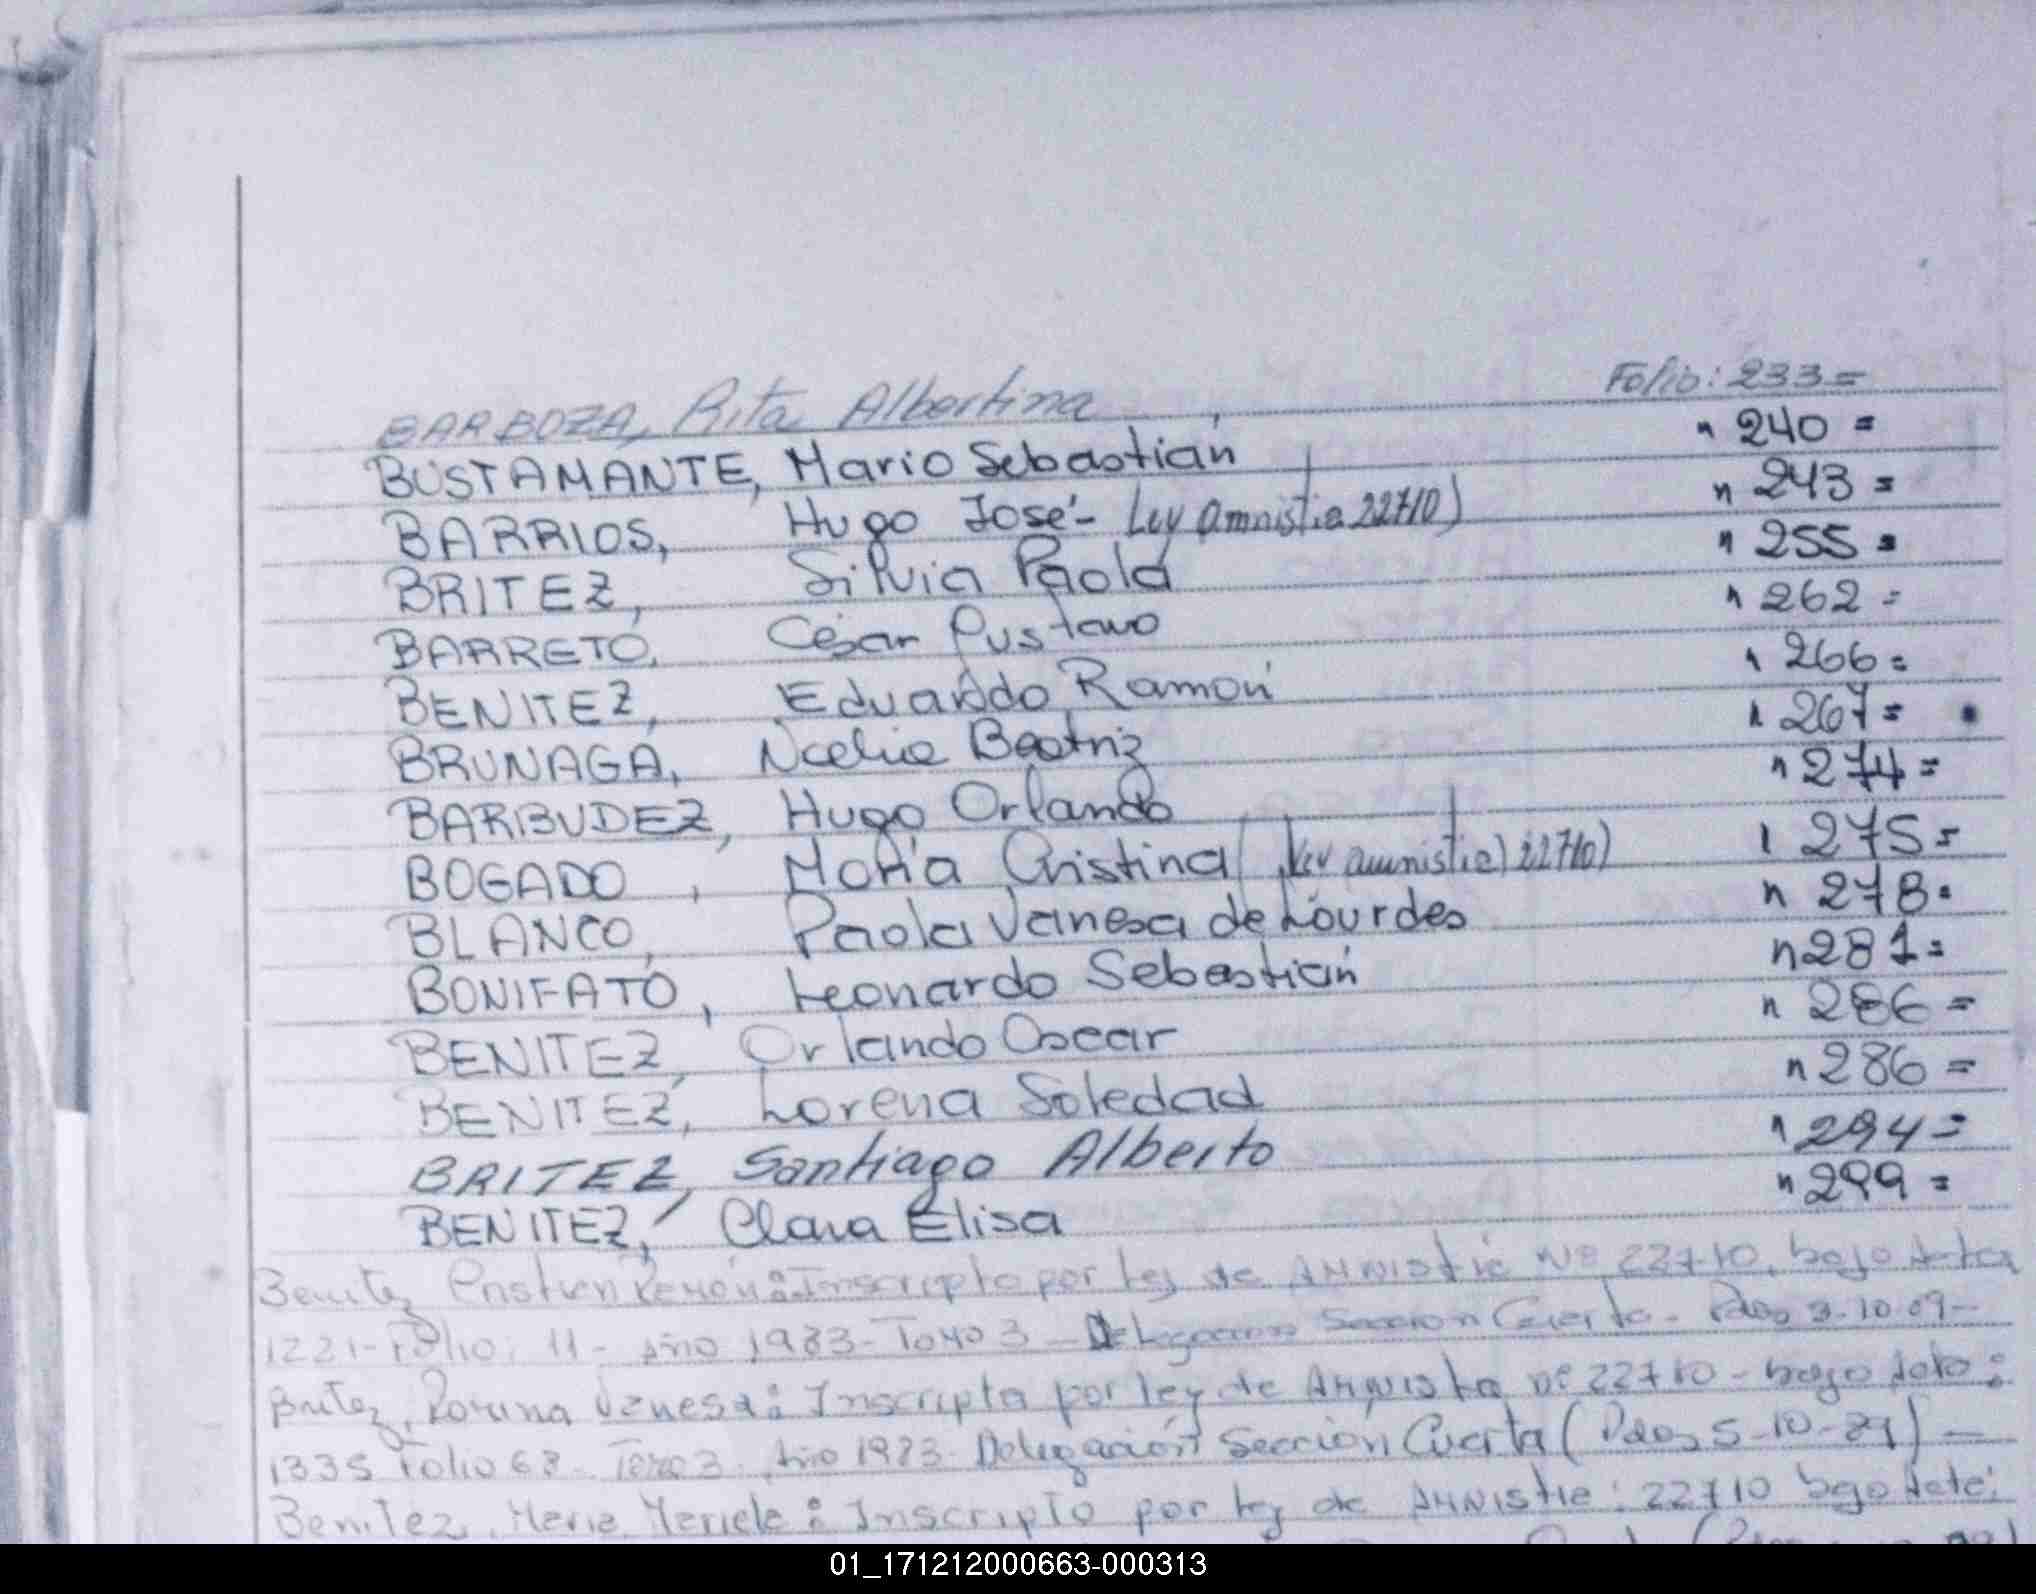 BARBOZA, Rita Albertina Folio: 233=
BUSTAMANTE, Mario Sebastián " 240 =
BARRIOS, Hugo José - Ley amnistia 22710) " 243 =
BRITEZ, Silvia Paola " 255 =
BARRETO, César Gustavo " 262 =
BENITEZ, Eduardo Ramón " 266 =
BRUNAGA, Noelia Beatriz " 267 =
BARBUDEZ, Hugo Orlando " 274 =
BOGADO, María Cristina (Ley amnistia) 22710) " 275 =
BLANCO, Paola Vanesa de Lourdes " 278 =
BONIFATO, Leonardo Sebastián " 281 =
BENITEZ, Orlando Oscar " 286 =
BENITEZ, Lorena Soledad " 286 =
BRITEZ, Santiago Alberto " 294 =
BENITEZ, Clara Elisa " 299 =
Benitez Ramón: Inscripto por Ley de Amnistie Nº 22710, bajo
1221- Folio: 11- Año 1983- Tomo 3 - Delegacion Seccion Cuarta - Pdas 3-10-09-
Britez, Vanesa: Inscripta por Ley de Amnistia Nº 22710 - bajo
1335 Folio 68 - Tomo 3 - Año 1983 - Delegación Sección Cuarta (Pdas, 5-10- ) -
Benitez, Maria Mariela: Inscripto por Ley de Amnistie: 22710 bajo